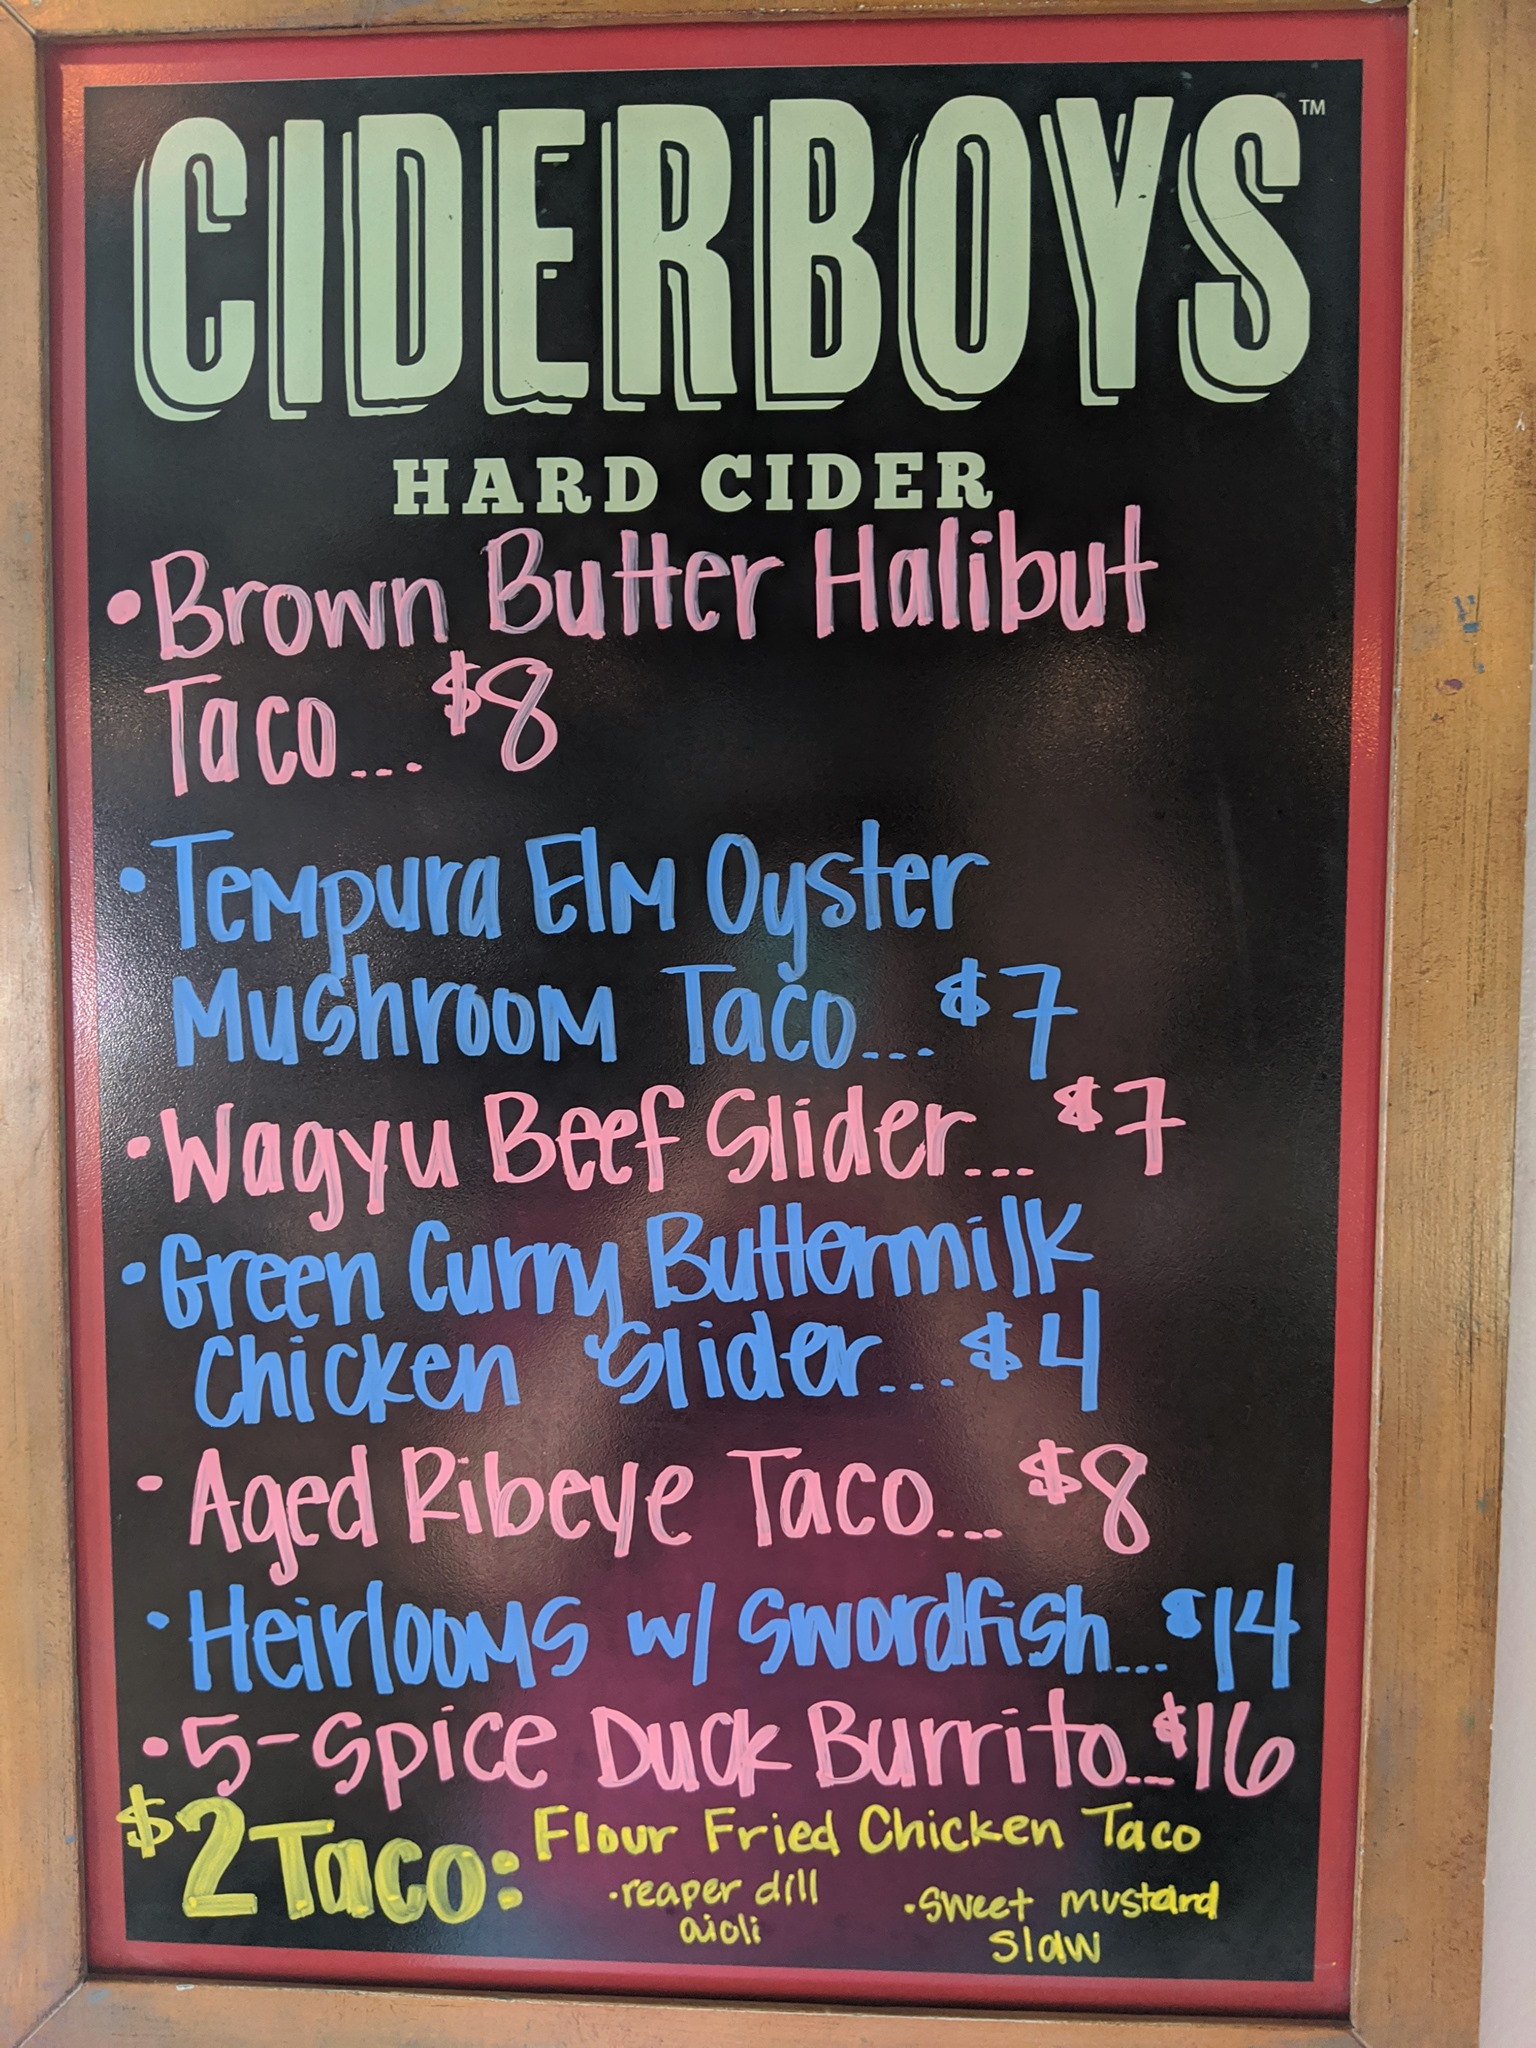 CIDERBOYS™
HARD CIDER
• Brown Butter Halibut
Taco... $8
• Tempura Elm Oyster
Mushroom Taco... $7
• Wagyu Beef Slider... $7
• Green Curry Buttermilk
Chicken Slider... $4
• Aged Ribeye Taco... $8
• Heirlooms w/ Swordfish... $14
• 5-Spice Duck Burrito... $16
$2 Taco: Flour Fried Chicken Taco
• reaper dill
aioli
• sweet mustard
slaw